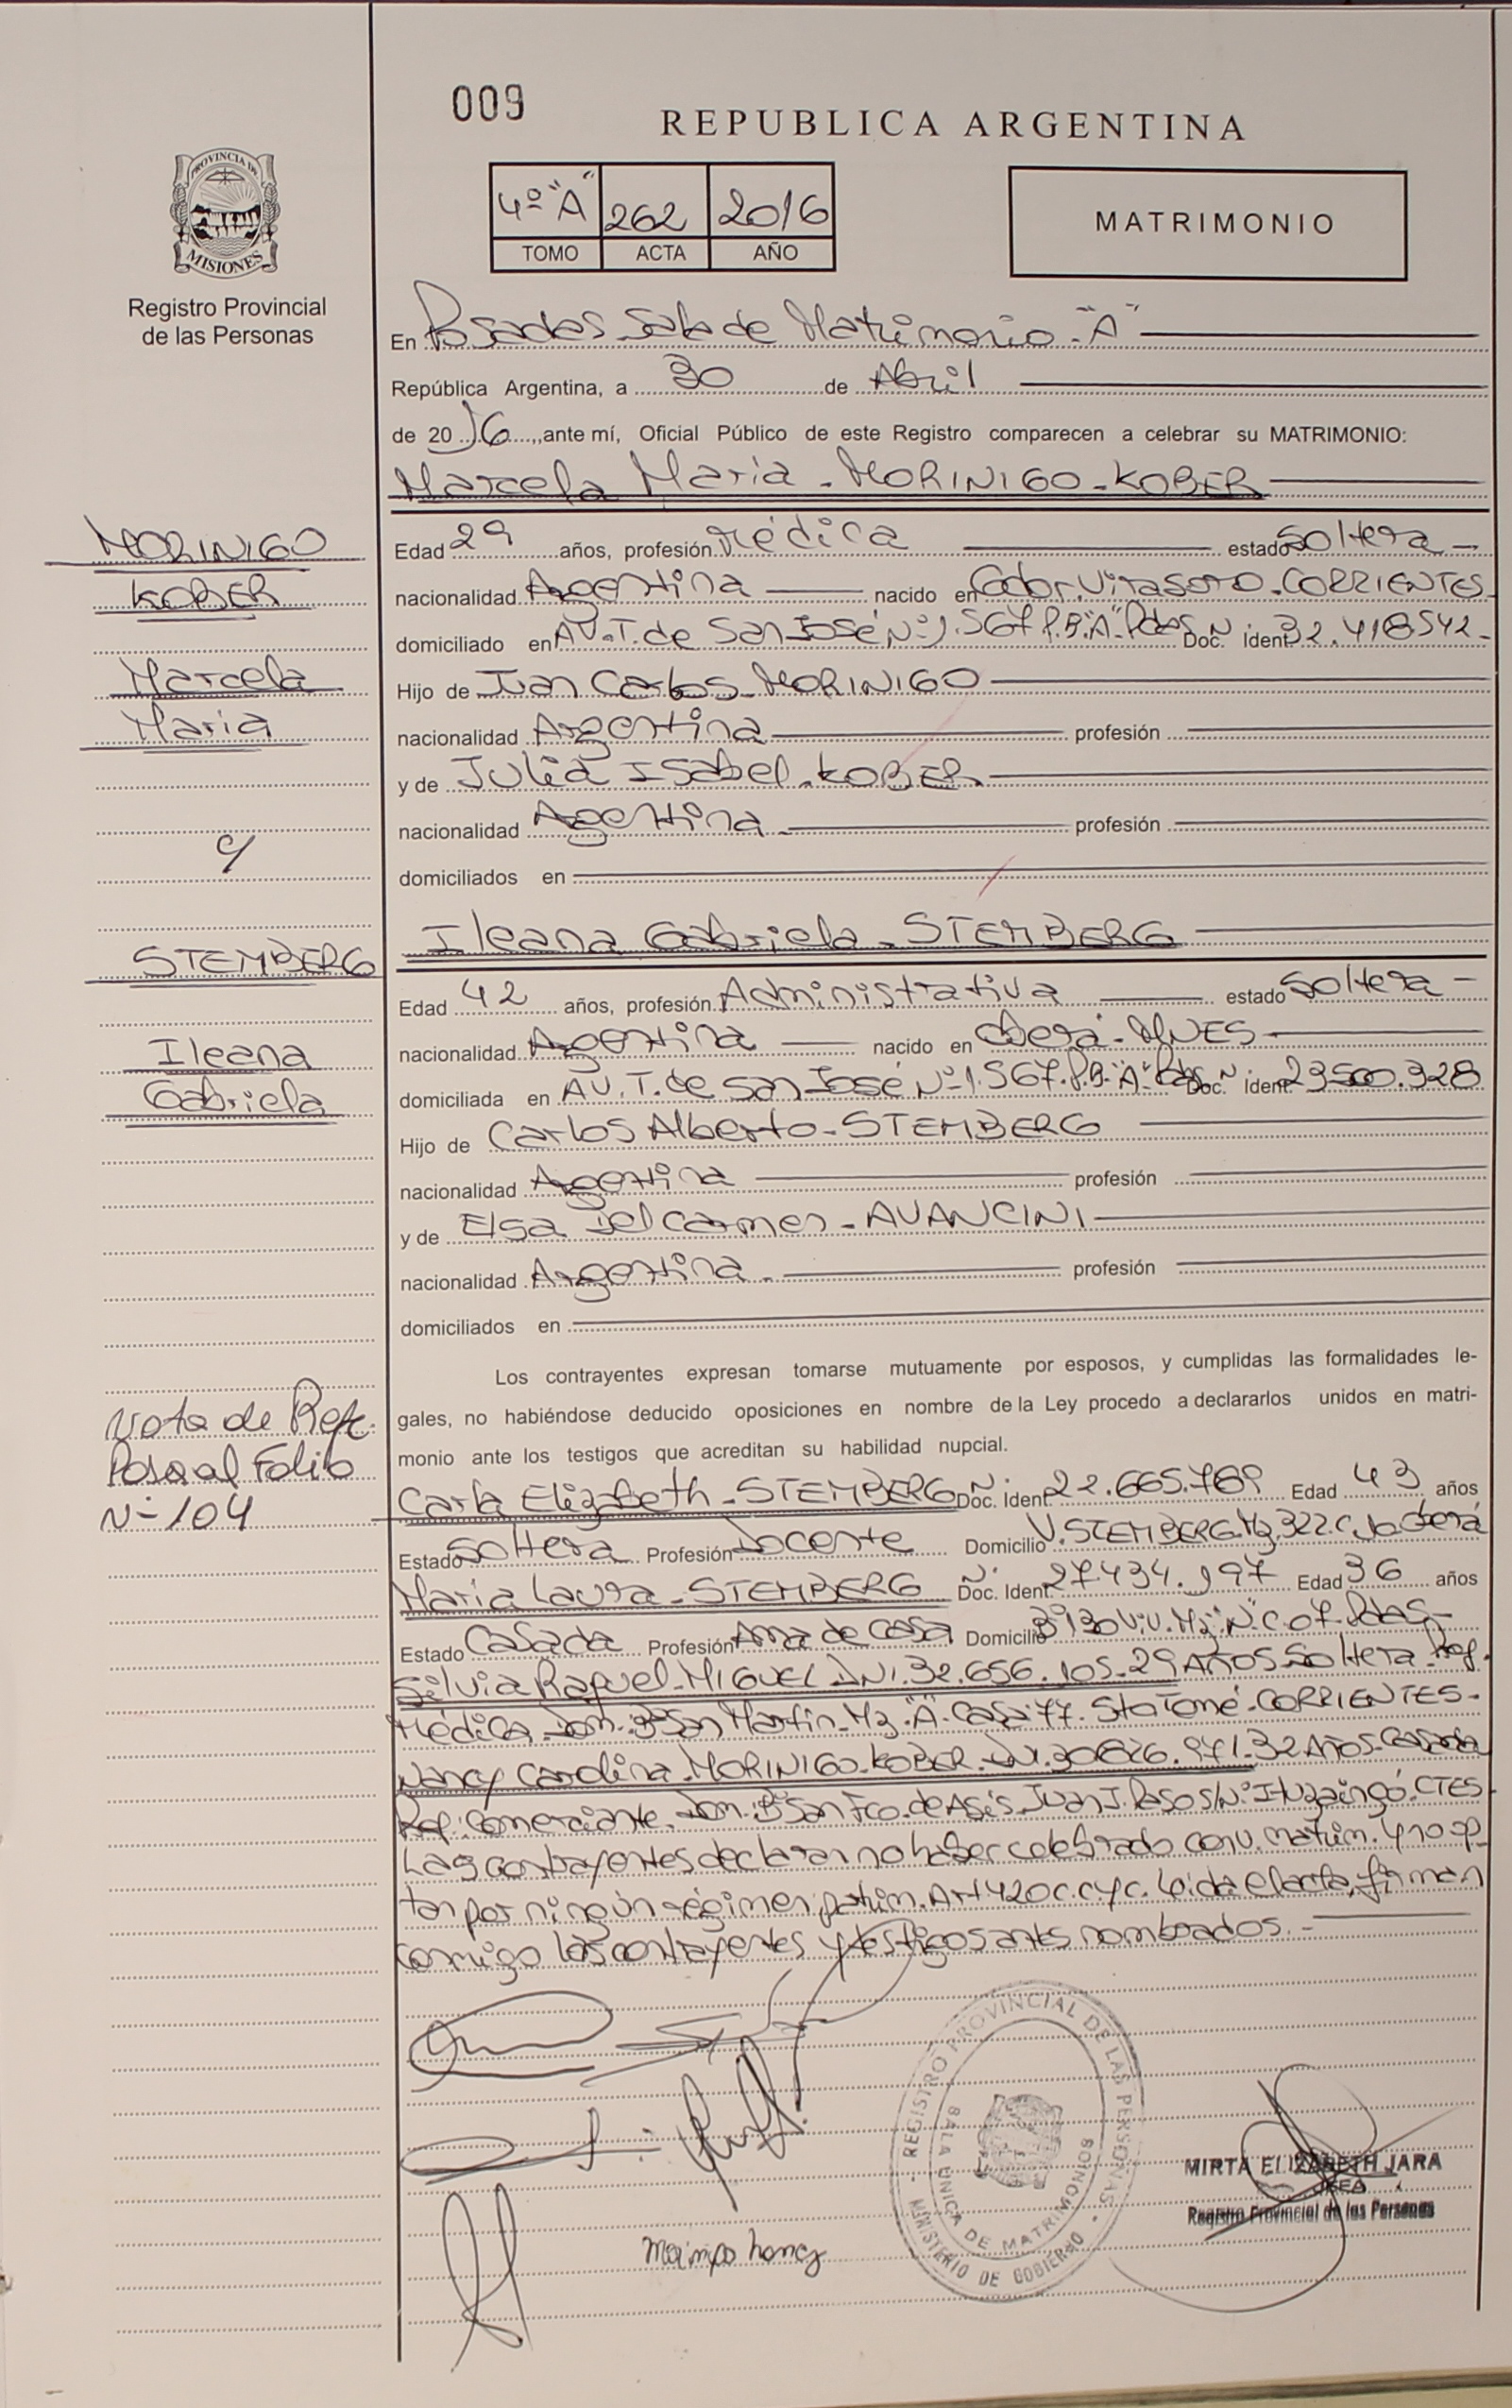 009
REPUBLICA ARGENTINA
PROVINCIA DE
MISIONES
Registro Provincial
de las Personas
4º "A" 262 2016
TOMO ACTA AÑO
MATRIMONIO
En Posadas Sala de Matrimonio "A"
República Argentina, a 30 de Abril
de 2016, ante mí, Oficial Público de este Registro comparecen a celebrar su MATRIMONIO:
Marcela Maria - MORINIGO - KOBER
MORINIGO
KOBER
Marcela
Maria
c/
STEMBERG
Ileana
Gabriela
Edad 29 años, profesión Médica estado Soltera -
nacionalidad Argentina nacido en Gdor. Virasoro - CORRIENTES
domiciliado en AV. T. de San José Nº 1.567 P.B. "A" Pdas Doc. Ident. Nº 32.418.542 -
Hijo de Juan Carlos - MORINIGO
nacionalidad Argentina profesión
y de Julia Isabel - KOBER
nacionalidad Argentina - profesión
domiciliados en
Ileana Gabriela - STEMBERG
Edad 42 años, profesión Administrativa estado Soltera -
nacionalidad Argentina nacido en Oberá - MNES -
domiciliada en AV. T. de San José Nº 1.567 P.B. "A" Pdas Doc. Ident. Nº 23.500.328
Hijo de Carlos Alberto - STEMBERG
nacionalidad Argentina profesión
y de Elsa Del Carmen - AVANCINI
nacionalidad Argentina - profesión
domiciliados en
Los contrayentes expresan tomarse mutuamente por esposos, y cumplidas las formalidades le-
gales, no habiéndose deducido oposiciones en nombre de la Ley procedo a declararlos unidos en matri-
monio ante los testigos que acreditan su habilidad nupcial.
Nota de Ref.
Pasa al Folio
Nº 104
Carla Elizabeth - STEMBERG Doc. Ident. Nº 22.665.789 Edad 43 años
Estado Soltera Profesión Docente Domicilio V. STEMBERG Mz 322 C. Oberá
Maria Laura - STEMBERG Doc. Ident. Nº 27.434.197 Edad 36 años
Estado Casada Profesión Ama de casa Domicilio Bº 130 Viv. Mz "N" C. 07. Pdas -
Silvia Raquel - MIGUEL DNI. 32.656.105 - 29 Años Soltera - Prof.
Médica - Dom. Bº San Martin - Mz. "A" Casa 77. Sto Tomé - CORRIENTES -
Nancy Carolina - MORINIGO - KOBER - DNI. 30826.971 - 32 Años - Casada
Prof: Comerciante. Dom. Bº San Fco. de Asís Juan J. Paso S/Nº Ituzaingó - CTES -
Las contrayentes declaran no haber celebrado conv. matrim. y no op
tan por ningún régimen patrim. Art 420 C.C.y C. Leida el acta, firman
conmigo las contrayentes y testigos antes nombrados. -
REGISTRO PROVINCIAL DE LAS PERSONAS
SALA UNICA DE MATRIMONIOS
MINISTERIO DE GOBIERNO
MIRTA ELIZABETH JARA
Registro Provincial de las Personas